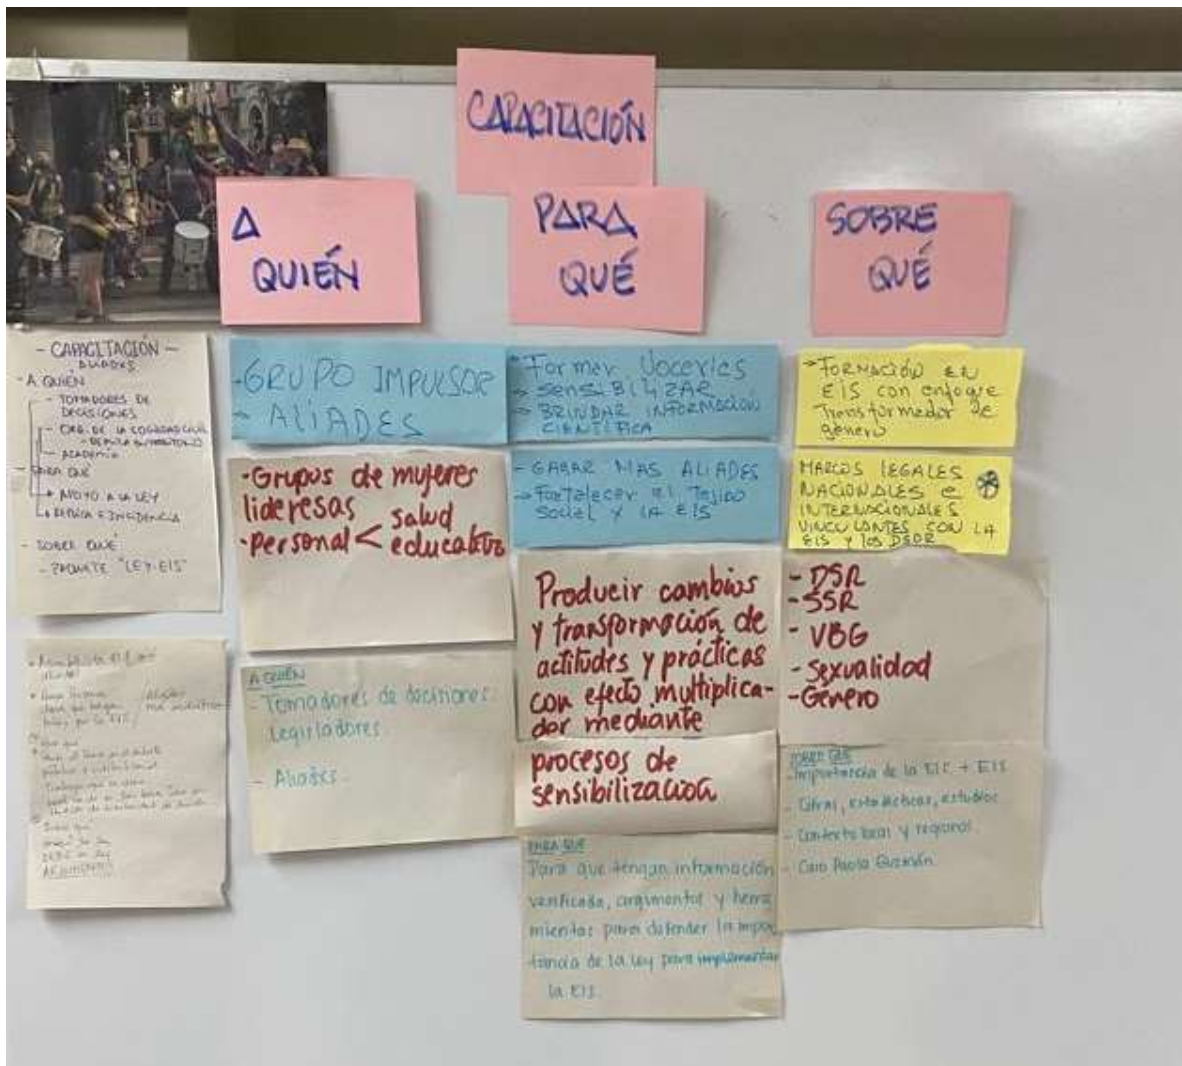 CAPACITACIÓN
A
QUIÉN
PARA
QUÉ
SOBRE
QUÉ
- CAPACITACIÓN -
ALIADOS
- A QUIÉN
- TOMADORES DE
DECISIONES
- ORG. DE LA
- ACADEMIA
QUÉ
APOYO A LA LEY
E INCIDENCIA
- SOBRE QUÉ
- PAQUETE "LEY-EIS"
- GRUPO IMPULSOR
- ALIADES
- Grupos de mujeres
lideresas
- personal < salud
educativo
A QUIÉN
- Tomadores de decisiones:
Legisladores.
- Aliades.
Formar Vocerías
→ SENSIBILIZAR
→ BRINDAR INFORMACIÓN
CIENTÍFICA
- GANAR MAS ALIADES
→ Fortalecer el Tejido
Social y LA EIS
Producir cambios
y transformación de
actitudes y prácticas
con efecto multiplica-
dor mediante
procesos de
sensibilización
PARA QUÉ
Para que tengan información
verificada, argumentos y herra
mientas para defender la impor
tancia de la ley para implementar
la EIS.
→ FORMACIÓN EN
EIS con enfoque
Transformador de
género
MARCOS LEGALES
NACIONALES e
INTERNACIONALES
VINCULANTES CON LA
EIS y los DSDR
- DSR
- SSR
- VBG
- Sexualidad
- Género
SOBRE QUÉ
- Importancia de la + EIS
- Cifras, estadísticas, estudios
- Contexto local y regional.
- Caso Paola Guzmán.